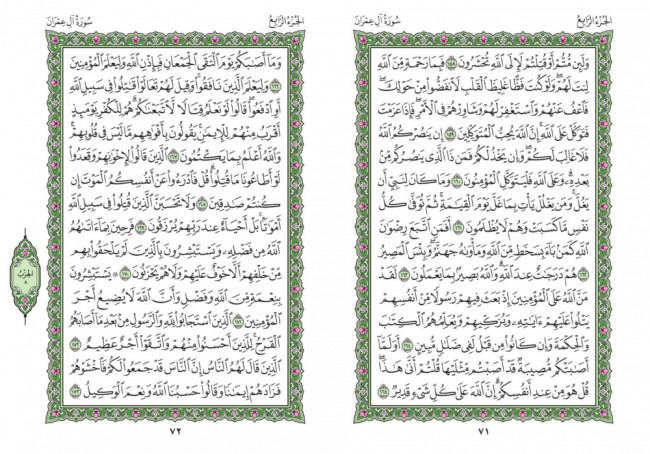 الجُزْءُ الرَّابِعُ
سُورَةُ آلِ عِمْرَان
وَلَئِن مُّتُّمْ أَوْ قُتِلْتُمْ لَإِلَى ٱللَّهِ تُحْشَرُونَ ١٥٨ فَبِمَا رَحْمَةٍ مِّنَ ٱللَّهِ
لِنتَ لَهُمْ ۖ وَلَوْ كُنتَ فَظًّا غَلِيظَ ٱلْقَلْبِ لَٱنفَضُّوا۟ مِنْ حَوْلِكَ ۖ
فَٱعْفُ عَنْهُمْ وَٱسْتَغْفِرْ لَهُمْ وَشَاوِرْهُمْ فِى ٱلْأَمْرِ ۖ فَإِذَا عَزَمْتَ
فَتَوَكَّلْ عَلَى ٱللَّهِ ۚ إِنَّ ٱللَّهَ يُحِبُّ ٱلْمُتَوَكِّلِينَ ١٥٩ إِن يَنصُرْكُمُ ٱللَّهُ
فَلَا غَالِبَ لَكُمْ ۖ وَإِن يَخْذُلْكُمْ فَمَن ذَا ٱلَّذِى يَنصُرُكُم مِّنۢ
بَعْدِهِۦ ۗ وَعَلَى ٱللَّهِ فَلْيَتَوَكَّلِ ٱلْمُؤْمِنُونَ ١٦٠ وَمَا كَانَ لِنَبِىٍّ أَن
يَغُلَّ ۚ وَمَن يَغْلُلْ يَأْتِ بِمَا غَلَّ يَوْمَ ٱلْقِيَـٰمَةِ ۚ ثُمَّ تُوَفَّىٰ كُلُّ
نَفْسٍ مَّا كَسَبَتْ وَهُمْ لَا يُظْلَمُونَ ١٦١ أَفَمَنِ ٱتَّبَعَ رِضْوَٰنَ
ٱللَّهِ كَمَنۢ بَآءَ بِسَخَطٍ مِّنَ ٱللَّهِ وَمَأْوَىٰهُ جَهَنَّمُ ۚ وَبِئْسَ ٱلْمَصِيرُ
١٦٢ هُمْ دَرَجَـٰتٌ عِندَ ٱللَّهِ ۗ وَٱللَّهُ بَصِيرٌۢ بِمَا يَعْمَلُونَ ١٦٣ لَقَدْ
مَنَّ ٱللَّهُ عَلَى ٱلْمُؤْمِنِينَ إِذْ بَعَثَ فِيهِمْ رَسُولًا مِّنْ أَنفُسِهِمْ
يَتْلُوا۟ عَلَيْهِمْ ءَايَـٰتِهِۦ وَيُزَكِّيهِمْ وَيُعَلِّمُهُمُ ٱلْكِتَـٰبَ
وَٱلْحِكْمَةَ وَإِن كَانُوا۟ مِن قَبْلُ لَفِى ضَلَـٰلٍ مُّبِينٍ ١٦٤ أَوَلَمَّآ
أَصَـٰبَتْكُم مُّصِيبَةٌ قَدْ أَصَبْتُم مِّثْلَيْهَا قُلْتُمْ أَنَّىٰ هَـٰذَا ۖ
قُلْ هُوَ مِنْ عِندِ أَنفُسِكُمْ ۗ إِنَّ ٱللَّهَ عَلَىٰ كُلِّ شَىْءٍ قَدِيرٌ ١٦٥
٧١
الجُزْءُ الرَّابِعُ
سُورَةُ آلِ عِمْرَان
وَمَآ أَصَـٰبَكُمْ يَوْمَ ٱلْتَقَى ٱلْجَمْعَانِ فَبِإِذْنِ ٱللَّهِ وَلِيَعْلَمَ ٱلْمُؤْمِنِينَ
١٦٦ وَلِيَعْلَمَ ٱلَّذِينَ نَافَقُوا۟ ۚ وَقِيلَ لَهُمْ تَعَالَوْا۟ قَـٰتِلُوا۟ فِى سَبِيلِ ٱللَّهِ
أَوِ ٱدْفَعُوا۟ ۖ قَالُوا۟ لَوْ نَعْلَمُ قِتَالًا لَّٱتَّبَعْنَـٰكُمْ ۗ هُمْ لِلْكُفْرِ يَوْمَئِذٍ
أَقْرَبُ مِنْهُمْ لِلْإِيمَـٰنِ ۚ يَقُولُونَ بِأَفْوَٰهِهِم مَّا لَيْسَ فِى قُلُوبِهِمْ ۗ
وَٱللَّهُ أَعْلَمُ بِمَا يَكْتُمُونَ ١٦٧ ٱلَّذِينَ قَالُوا۟ لِإِخْوَٰنِهِمْ وَقَعَدُوا۟
لَوْ أَطَاعُونَا مَا قُتِلُوا۟ ۗ قُلْ فَٱدْرَءُوا۟ عَنْ أَنفُسِكُمُ ٱلْمَوْتَ إِن
كُنتُمْ صَـٰدِقِينَ ١٦٨ وَلَا تَحْسَبَنَّ ٱلَّذِينَ قُتِلُوا۟ فِى سَبِيلِ ٱللَّهِ
أَمْوَٰتًۢا ۚ بَلْ أَحْيَآءٌ عِندَ رَبِّهِمْ يُرْزَقُونَ ١٦٩ فَرِحِينَ بِمَآ ءَاتَىٰهُمُ
ٱللَّهُ مِن فَضْلِهِۦ وَيَسْتَبْشِرُونَ بِٱلَّذِينَ لَمْ يَلْحَقُوا۟ بِهِم
مِّنْ خَلْفِهِمْ أَلَّا خَوْفٌ عَلَيْهِمْ وَلَا هُمْ يَحْزَنُونَ ١٧٠ يَسْتَبْشِرُونَ
بِنِعْمَةٍ مِّنَ ٱللَّهِ وَفَضْلٍ وَأَنَّ ٱللَّهَ لَا يُضِيعُ أَجْرَ
ٱلْمُؤْمِنِينَ ١٧١ ٱلَّذِينَ ٱسْتَجَابُوا۟ لِلَّهِ وَٱلرَّسُولِ مِنۢ بَعْدِ مَآ أَصَابَهُمُ
ٱلْقَرْحُ ۚ لِلَّذِينَ أَحْسَنُوا۟ مِنْهُمْ وَٱتَّقَوْا۟ أَجْرٌ عَظِيمٌ ١٧٢
ٱلَّذِينَ قَالَ لَهُمُ ٱلنَّاسُ إِنَّ ٱلنَّاسَ قَدْ جَمَعُوا۟ لَكُمْ فَٱخْشَوْهُمْ
فَزَادَهُمْ إِيمَـٰنًا وَقَالُوا۟ حَسْبُنَا ٱللَّهُ وَنِعْمَ ٱلْوَكِيلُ ١٧٣
٧٢
الحِزْبُ
٨